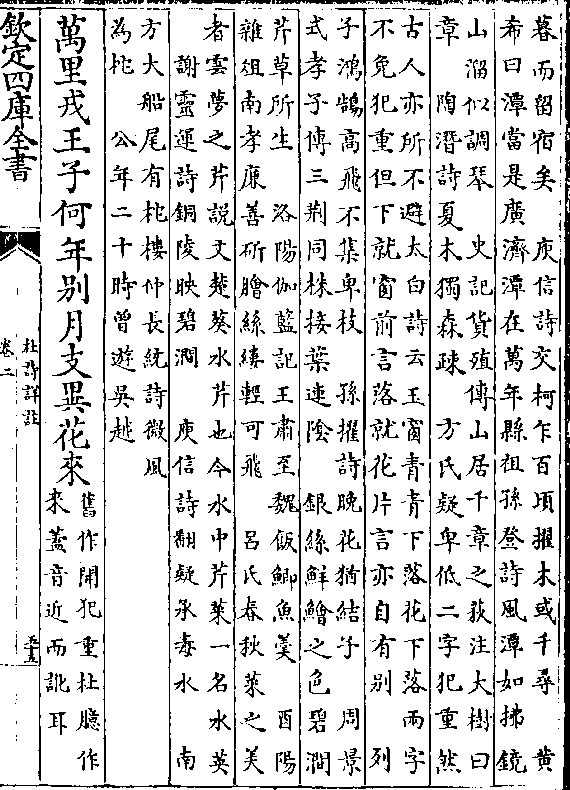 暮而留宿矣　庾信詩交柯乍百頃擢木或千尋　黄
希曰潭當是廣濟潭在萬年縣祖孫登詩風潭如拂鏡
山溜似調琴　史記貨殖傳山居千章之萩注大樹曰
章　陶潛詩夏木獨森疎　方氏疑卑低二字犯重然
古人亦所不避太白詩云玉窗青青下落花下落兩字
不免犯重但下就窗前言落就花片言亦自有别　列
子鴻鵠高飛不集卑枝　孫擢詩晚花猶結子　周景
式孝子傳三荆同株接葉連陰　銀絲鮮鱠之色碧澗
芹草所生　洛陽伽藍記王肅至魏飯鯽魚羮　酉陽
雜俎南孝廉善斫膾絲縷輕可飛　吕氏春秋菜之美
者雲夢之芹説文楚葵水芹也今水中芹菜一名水英
謝靈運詩銅陵映碧澗　庾信詩翻疑承毒水　南
方大船尾有柁樓仲長統詩微風
為柁　公年二十時曾遊吳越
萬里戎王子何年别月支異花來
舊作開犯重杜臆作
來蓋音近而訛耳
欽定四庫全書
杜詩詳註
卷二
五十五